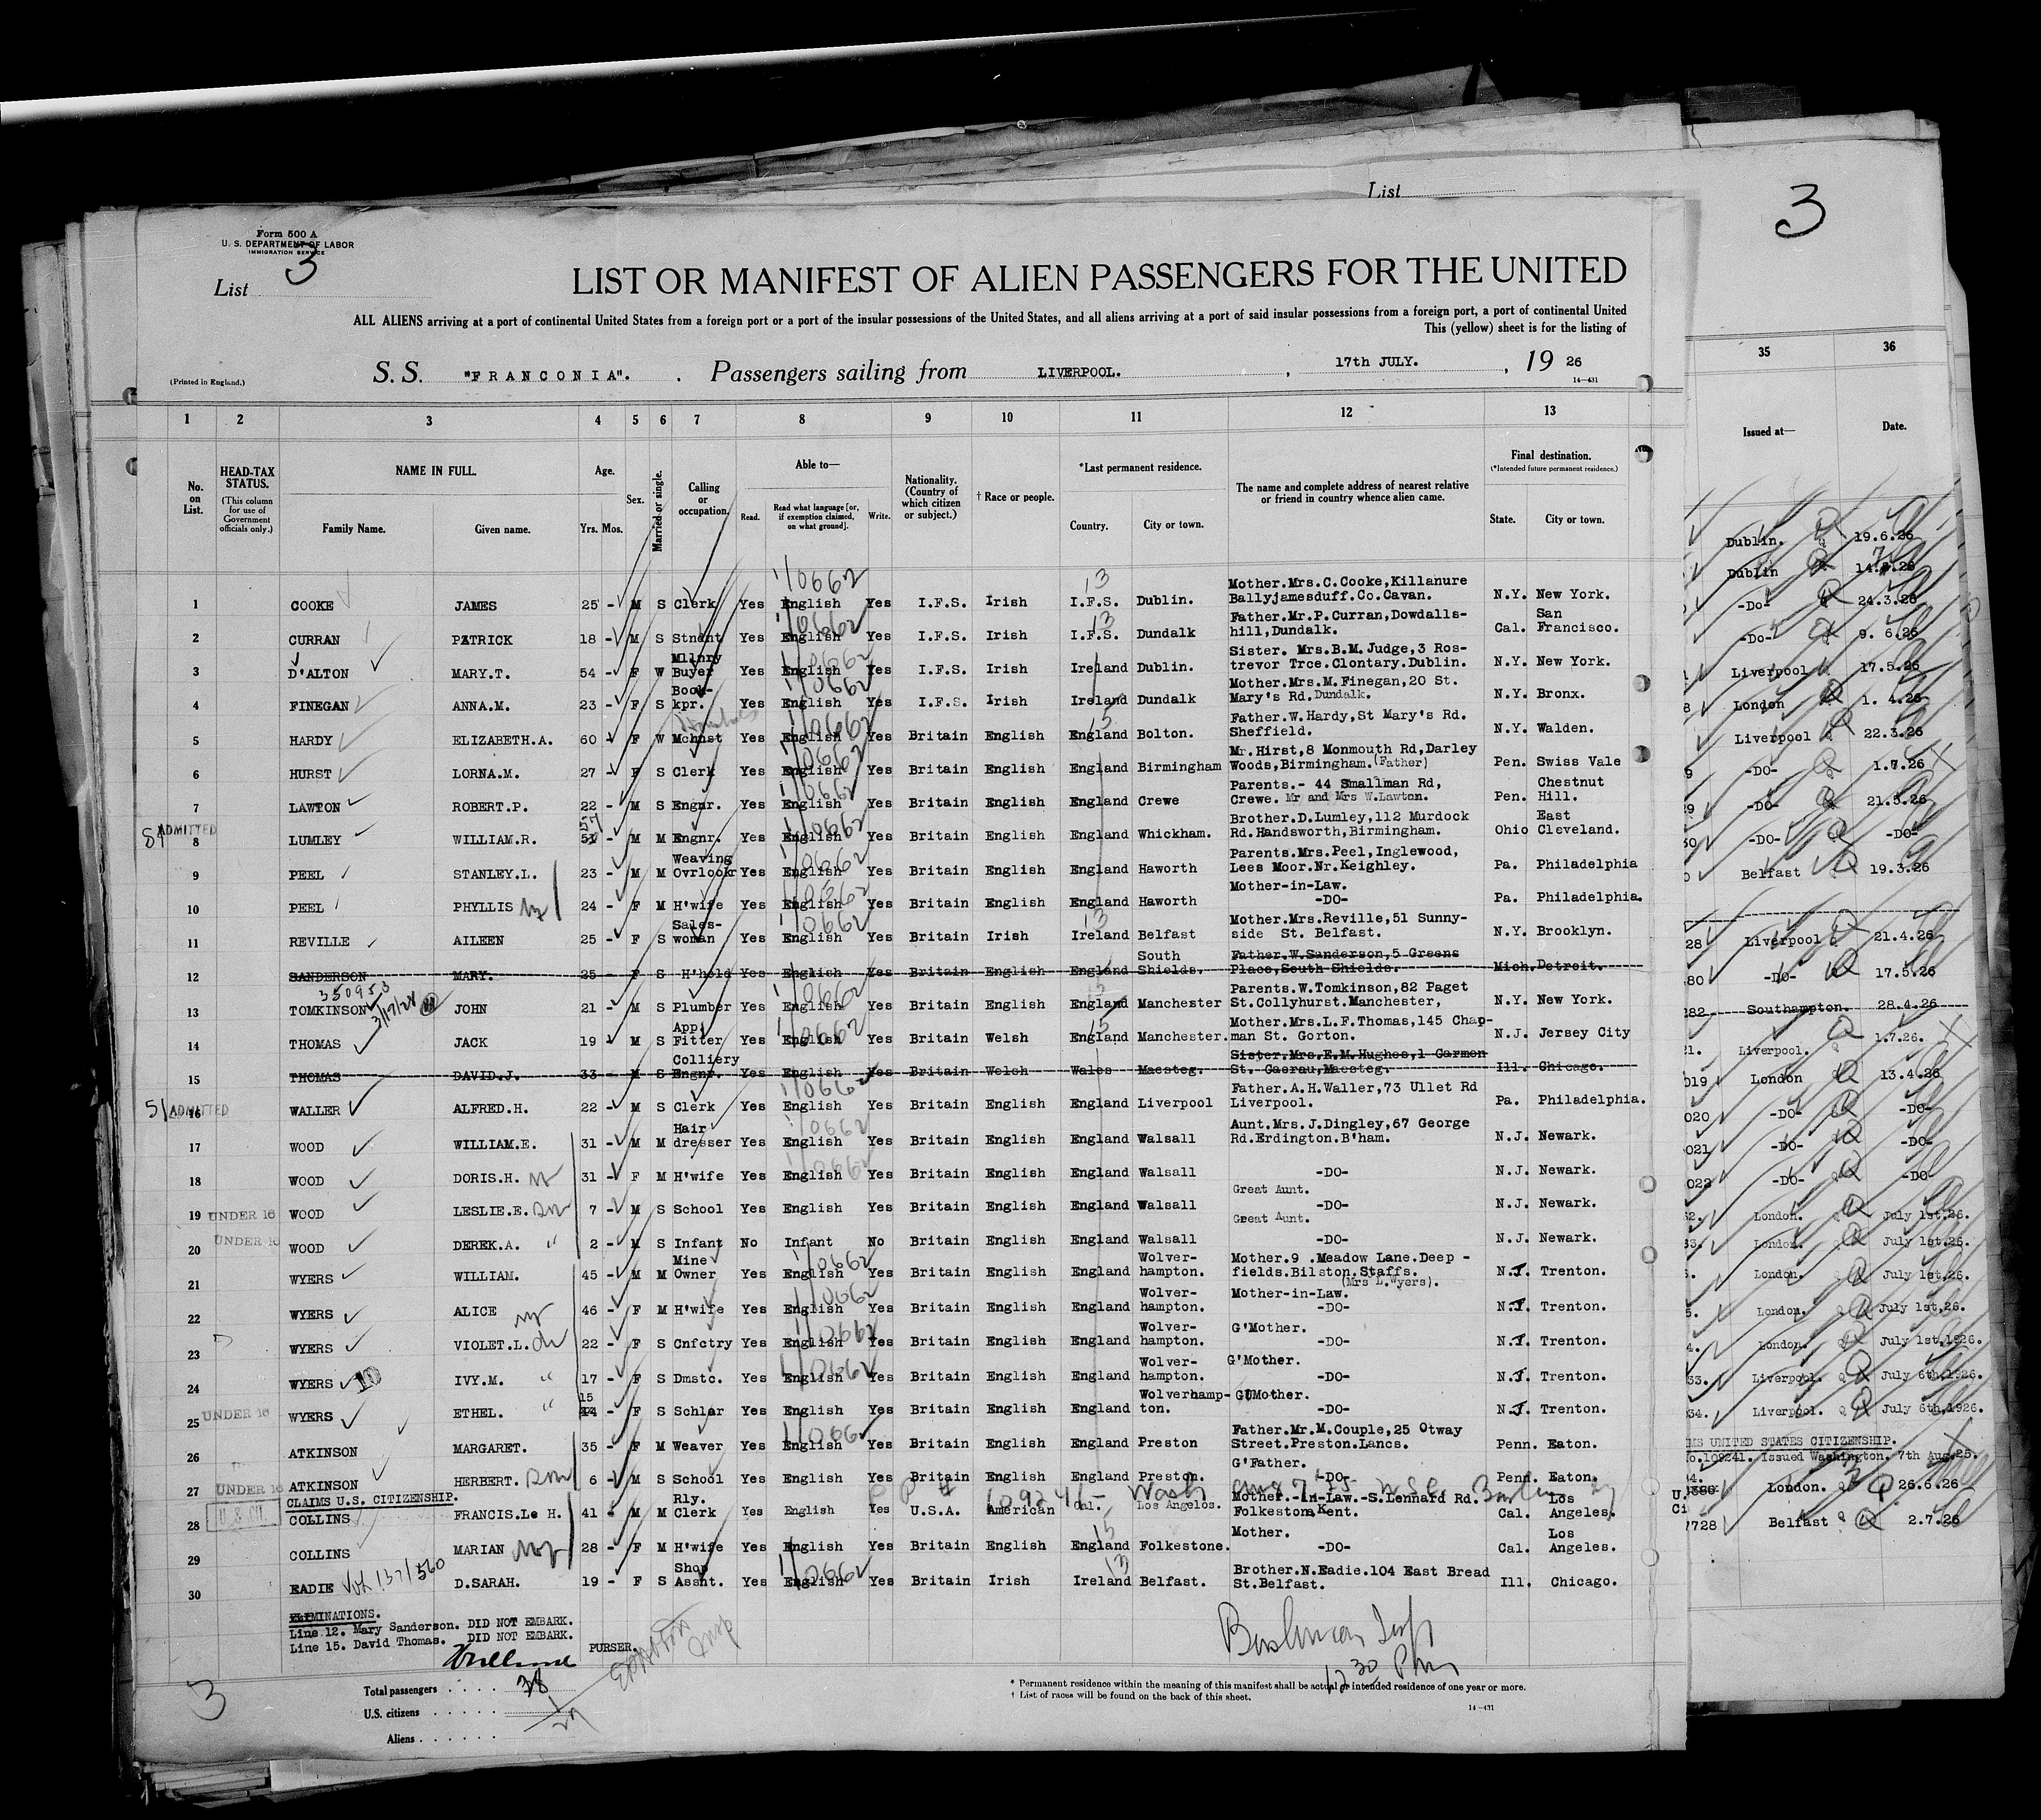 List
3
Form 500 A
U. S. DEPARTMENT OF LABOR
IMMIGRATION SERVICE
3
List
LIST OR MANIFEST OF ALIEN PASSENGERS FOR THE UNITED
ALL ALIENS arriving at a port of continental United States from a foreign port or a port of the insular possessions of the United States, and all aliens arriving at a port of said insular possessions from a foreign port, a port of continental United
This (yellow) sheet is for the listing of
(Printed in England.)
S. S. "FRANCONIA". Passengers sailing from LIVERPOOL. , 17th JULY. , 19 26
14-431
1 2 3 4 5 6 7 8 9 10 11 12 13
35 36
No. on List.
HEAD-TAX STATUS.
(This column for use of Government officials only.)
NAME IN FULL.
Family Name. Given name.
Age.
Yrs. Mos.
Sex.
Married or single.
Calling or occupation.
Able to—
Read. Read what language [or, if exemption claimed, on what ground]. Write.
Nationality. (Country of which citizen or subject.)
† Race or people.
*Last permanent residence.
Country. City or town.
The name and complete address of nearest relative or friend in country whence alien came.
Final destination.
(*Intended future permanent residence.)
State. City or town.
Issued at— Date.
1 COOKE JAMES 25 - M S Clerk Yes English Yes I.F.S. Irish I.F.S. Dublin. Mother.Mrs.C.Cooke,Killanure Ballyjamesduff.Co.Cavan. N.Y. New York.
2 CURRAN PATRICK 18 - M S Stndnt Yes English Yes I.F.S. Irish I.F.S. Dundalk Father.Mr.P.Curran,Dowdalls-hill,Dundalk. Cal. San Francisco.
3 D'ALTON MARY.T. 54 - F W Mllnry Buyer Yes English Yes I.F.S. Irish Ireland Dublin. Sister. Mrs.B.M.Judge,3 Ros-trevor Trce.Clontary.Dublin. N.Y. New York.
4 FINEGAN ANNA.M. 23 - F S Book-kpr. Yes English Yes I.F.S. Irish Ireland Dundalk Mother.Mrs.M.Finegan,20 St. Mary's Rd.Dundalk. N.Y. Bronx.
5 HARDY ELIZABETH.A. 60 - F W Mchnst Yes English Yes Britain English England Bolton. Father.W.Hardy,St Mary's Rd. Sheffield. N.Y. Walden.
6 HURST LORNA.M. 27 - F S Clerk Yes English Yes Britain English England Birmingham Mr.Hirst,8 Monmouth Rd,Darley Woods,Birmingham.(Father) Pen. Swiss Vale
7 LAWTON ROBERT.P. 22 - M S Engnr. Yes English Yes Britain English England Crewe Parents.- 44 Smallman Rd, Crewe. Mr and Mrs W.Lawton. Pen. Chestnut Hill.
ADMITTED
8 LUMLEY WILLIAM.R. 57 - M M Engnr. Yes English Yes Britain English England Whickham. Brother.D.Lumley,112 Murdock Rd.Handsworth,Birmingham. Ohio East Cleveland.
9 PEEL STANLEY.L. 23 - M M Weaving Ovrlookr Yes English Yes Britain English England Haworth Parents.Mrs.Peel,Inglewood, Lees Moor.Nr.Keighley. Pa. Philadelphia
10 PEEL PHYLLIS 24 - F M H'wife Yes English Yes Britain English England Haworth Mother-in-Law. -DO- Pa. Philadelphia.
11 REVILLE AILEEN 25 - F S Sales-woman Yes English Yes Britain Irish Ireland Belfast Mother.Mrs.Reville,51 Sunny-side St. Belfast. N.Y. Brooklyn.
12 SANDERSON MARY. 25 - F S H'hold Yes English Yes Britain English England South Shields. Father.W.Sanderson,5 Greens Place,South Shields. Mich. Detroit.
350953
3/17/24
13 TOMKINSON JOHN 21 - M S Plumber Yes English Yes Britain English England Manchester Parents.W.Tomkinson,82 Paget St.Collyhurst.Manchester, N.Y. New York.
14 THOMAS JACK 19 - M S App; Fitter Yes English Yes Britain Welsh England Manchester. Mother.Mrs.L.F.Thomas,145 Chap-man St. Gorton. N.J. Jersey City
15 THOMAS DAVID.J. 33 - M S Colliery Engnr. Yes English Yes Britain Welsh Wales Maesteg. Sister.Mrs.E.M.Hughes,1 Carmen St. Caerau,Maesteg. Ill. Chicago.
ADMITTED
16 WALLER ALFRED.H. 22 - M S Clerk Yes English Yes Britain English England Liverpool Father.A.H.Waller,73 Ullet Rd Liverpool. Pa. Philadelphia.
17 WOOD WILLIAM.E. 31 - M M Hair dresser Yes English Yes Britain English England Walsall Aunt.Mrs.J.Dingley,67 George Rd.Erdington.B'ham. N.J. Newark.
18 WOOD DORIS.H. 31 - F M H'wife Yes English Yes Britain English England Walsall -DO- N.J. Newark.
19 UNDER 16 WOOD LESLIE.E. 7 - M S School Yes English Yes Britain English England Walsall Great Aunt. -DO- N.J. Newark.
20 UNDER 16 WOOD DEREK.A. 2 - M S Infant No Infant No Britain English England Walsall Great Aunt. -DO- N.J. Newark.
21 WYERS WILLIAM. 45 - M M Mine Owner Yes English Yes Britain English England Wolver-hampton. Mother.9 .Meadow Lane.Deep -fields.Bilston.Staffs. (Mrs L.Wyers). N.J. Trenton.
22 WYERS ALICE 46 - F M H'wife Yes English Yes Britain English England Wolver-hampton. Mother-in-Law. -DO- N.J. Trenton.
23 WYERS VIOLET.L. 22 - F S Cnfctry Yes English Yes Britain English England Wolver-hampton. G'Mother. -DO- N.J. Trenton.
24 WYERS IVY.M. 17 - F S Dmstc. Yes English Yes Britain English England Wolver-hampton. G'Mother. -DO- N.J. Trenton.
25 UNDER 16 WYERS ETHEL. 15 - F S Schlar Yes English Yes Britain English England Wolverhamp-ton. G'Mother. -DO- N.J. Trenton.
26 ATKINSON MARGARET. 35 - F M Weaver Yes English Yes Britain English England Preston Father.Mr.M.Couple,25 Otway Street.Preston.Lancs. Penn. Eaton.
27 UNDER 16 ATKINSON HERBERT. 6 - M S School Yes English Yes Britain English England Preston. G'Father. -DO- Penn. Eaton.
CLAIMS U.S. CITIZENSHIP.
28 COLLINS FRANCIS.Le H. 41 - M M Rly. Clerk Yes English Yes U.S.A. American Cal. Los Angelos. Mother.-in-Law.-S.Lennard Rd. Folkestone Kent. Cal. Los Angeles.
29 COLLINS MARIAN 28 - F M H'wife Yes English Yes Britain English England Folkestone. Mother. -DO- Cal. Los Angeles.
30 EADIE D.SARAH. 19 - F S Shop Assnt. Yes English Yes Britain Irish Ireland Belfast. Brother.N.Eadie.104 East Bread St.Belfast. Ill. Chicago.
ELIMINATIONS.
Line 12. Mary Sanderson. DID NOT EMBARK.
Line 15. David Thomas. DID NOT EMBARK.
PURSER.
Total passengers
U.S. citizens
Aliens
3
12 30 Pm
* Permanent residence within the meaning of this manifest shall be actual or intended residence of one year or more.
† List of races will be found on the back of this sheet.
14-431
Dublin. 19.6.26
Dublin
-Do- 24.3.26
-Do- 9. 6.26
Liverpool 17.5.26
London 1. 4.26
Liverpool 22.3.26
-DO- 1.7.26
-DO- 21.5.26
-DO- -DO-
Belfast 19.3.26
Liverpool 21.4.26
-DO- 17.5.26
Southampton. 28.4.26
Liverpool. 1.7.26.
London 13.4.26
-DO- -DO-
-DO- -DO-
-DO- -DO-
London. July 1st.26.
London. July 1st.26.
London. July 1st.26.
London. July 1st,26.
London. July 1st,1926.
Liverpool. July 6th,1926.
Liverpool. July 6th,1926.
UNITED STATES CITIZENSHIP.
No.109241. Issued Washington. 7th Aug.25.
London. 26.6.26
7728 Belfast 2.7.26